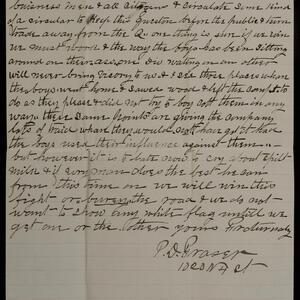 business men & all citizens & circulate some kind
of a circular to Keep this question before the public & turn
trade away from the Q. one thing is sure if we win
we must move & the way the boys has been sitting
around on their & waiting on one other
will never bring victory to us & I see three places where
the boys went home & sawed wood & left the Compt to
do as they please & did not try to boycott them in any
way & these same points are giving the Company
lots of traid when they would not have got it had
the boys used their influence against them
but however it is to late now to cry about spilt
milk & if every man does the best he can
from this time on we will win this
fight or the road & we do not
want to show any white flag untill we
get one or the other yours Fraturnaly
P. D. Fraser
1020 N St